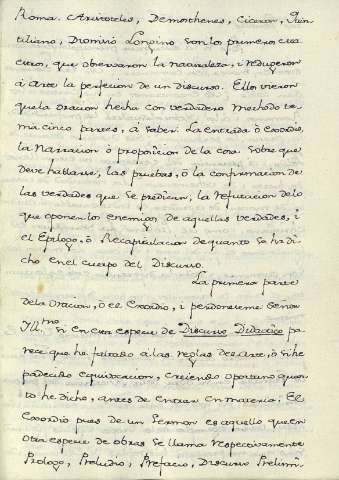 Roma. Aristoteles, Demosthenes, Ciceron, Quin-
tiliano, Dionisio Longino son los primeros ma
estros, que observaron la naturaleza, i redugeron
á Arte la perfecion de un discurso. Ellos vieron
que la oracion hecha con verdadero methodo te-
nia cinco partes, á saber. La entrada ó exordio,
la Narracion ó proposicion de la cosa sobre que
deve hablarse, las pruebas, ó la confirmacion de
las verdades que se predican, la refutacion delo
que oponen los enemigos de aquellas verdades, i
el Epilogo, ó Recapitulacion de quanto se ha di
cho en el cuerpo del Discurso.
La primera parte
dela Oracion, ó el Exordio, i perdoneseme Señor
Ill.mo si en esta especie de Discurso Didactico pa
rece que he faltado á las reglas del Arte, ó si he
padecido equivocacion, creiendo oportuno quan
to he dicho, antes de entrar en materia. El
Exordio pues de un Sermon es aquello que en
otra especie de obras se llama respectivamente
Prologo, Preludio, Prefacio, Discurso Prelimi-